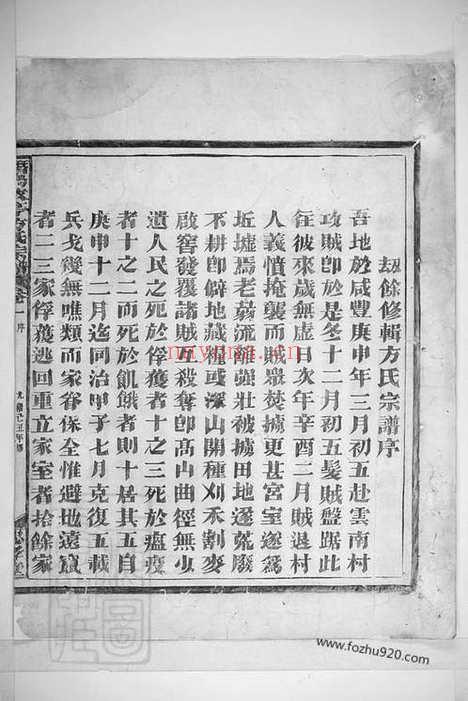 劫餘修輯方氏宗譜序
吾地於咸豐庚申年三月初五赴雲南村
攻賊卽於是冬十二月初五髮賊盤踞此
徃彼來歲無虛日次年辛酉二月賊退村
人義憤掩襲而賊衆焚擄更甚宮室遂爲
坵墟焉老弱流離強壯被擄田地遂荒廢
不耕卽僻地藏種或深山開種刈禾割麥
啟窖發覆諸賊互殺奪卽高山曲徑無少
遺人民之死於俘獲者十之三死於瘟疫
者十之二而死於飢餓者則十居其五自
庚申十二月迄同治甲子七月克復五載
兵戈幾無噍類而家眷保全惟避地遠竄
者二三家俘獲逃回重立家室者拾餘家
方氏宗譜
序
www.fozhu920.com